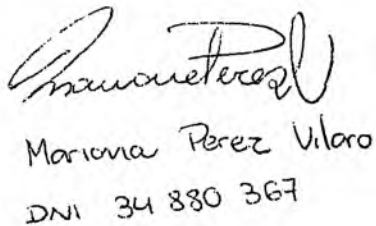 Mariana Perez V
Mariana Perez Vilaro
DNI 34 880 367